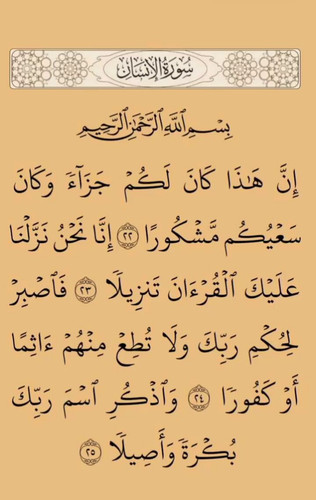 سُورَةُ الإِنسَانِ
بِسْمِ ٱللَّهِ ٱلرَّحْمَٰنِ ٱلرَّحِيمِ
إِنَّ هَٰذَا كَانَ لَكُمْ جَزَآءً وَكَانَ
سَعْيُكُم مَّشْكُورًا ٢٢ إِنَّا نَحْنُ نَزَّلْنَا
عَلَيْكَ ٱلْقُرْءَانَ تَنزِيلًا ٢٣ فَٱصْبِرْ
لِحُكْمِ رَبِّكَ وَلَا تُطِعْ مِنْهُمْ ءَاثِمًا
أَوْ كَفُورًا ٢٤ وَٱذْكُرِ ٱسْمَ رَبِّكَ
بُكْرَةً وَأَصِيلًا ٢٥